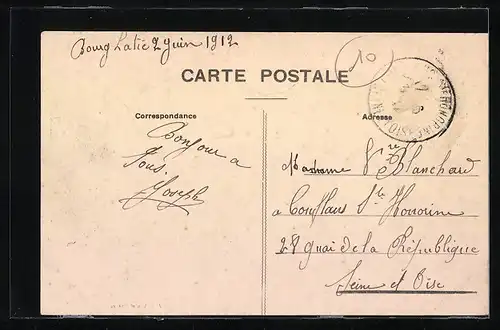 Bourg Lastic 2 Juin 1912
10
CARTE POSTALE
Correspondance
Adresse
Bonjour a
Tous.
Joseph
Madame Vve Blanchard
a Conflans Ste Honorine
28 quai de la République
Seine et Oise